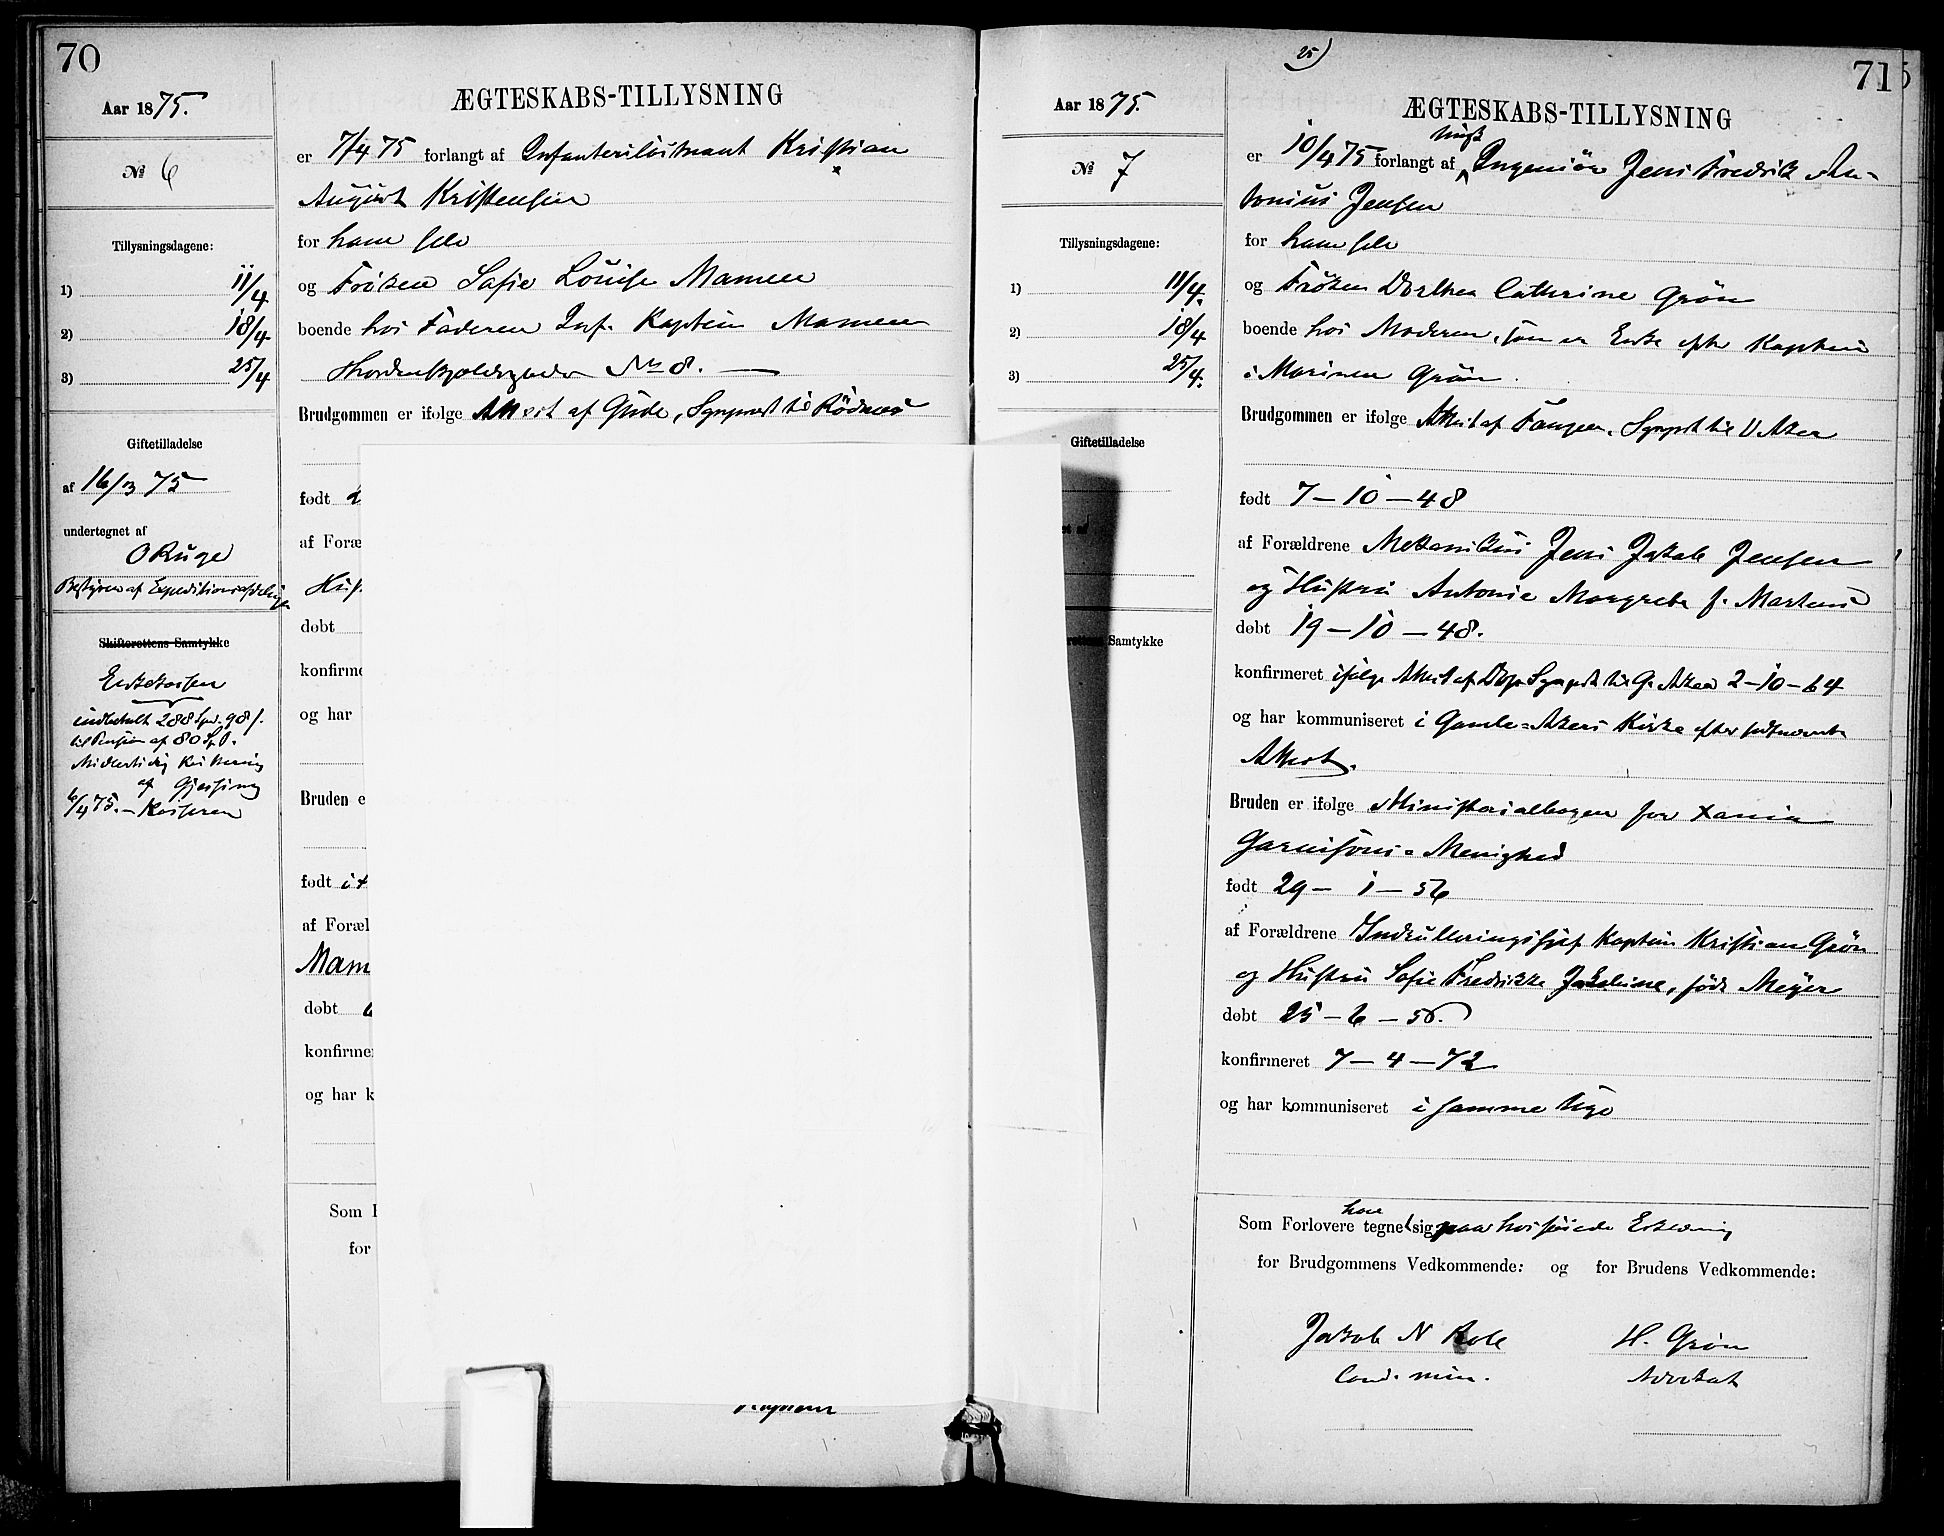 70
Aar 1875.
№ 6
Tillysningsdagene:
1) 11/4
2) 18/4
3) 25/4
Giftetilladelse
af 16/3 75
undertegnet af
O Ruge
Bestyrer af Expeditionsafdelingen
Skifterettens Samtykke
Enkekassen
indbetalt 288 Spd. 98 f.
til Pension af 80 Spd.
Midlertidig Kvittering
af Gjessing
6/4 75. – Kasserer
ÆGTESKABS-TILLYSNING
er 7/4 75 forlangt af Infanteriløitnant Kristian
August Kristensen
for ham selv
og Frøken Sofie Louise Mamen
boende hos Faderen Inf. Kaptein Mamen
Tordenskjoldsgaden No 8.
Brudgommen er ifølge Attest af Gude, Sognprest til Rödnes
født
af Foræ
Hus
døbt
konfirme
og har
Bruden e
født
af Foræl
Mam
døbt
konfirmer
og har k
Som
for
25)
71
Aar 1875.
№ 7
Tillysningsdagene:
1) 11/4.
2) 18/4
3) 25/4.
Giftetilladelse
Samtykke
ÆGTESKABS-TILLYSNING
er 10/4 75 forlangt af Ingeniör Jens Fredrik An-
tonius Jensen
for ham selv
og Frøken Dorthea Cathrine Grön
boende hos Moderen, som er Enke efter Kaptein
i Marinen Grön.
Brudgommen er ifølge Attest af Fangen, Sognprst til V Aker
født 7 – 10 – 48
af Forældrene Mekanikus Jens Jakob Jensen
og Hustru Antonie Margrete f. Martens
døbt 19 – 10 – 48.
konfirmeret ifølge Attest af Dop Sognprst til G. Aker 2-10-64
og har kommuniseret i Gamle-Akers Kirke efter sidstnævnte
Attest.
Bruden er ifølge Ministerialbogen for Xania
Garnisons-Menighed
født 29 – 1 – 56
af Forældrene Indrulleringschef Kaptein Kristian Grön
og Hustru Sofie Fredrikke Jakobine, født Meyer
døbt 25 – 6 – 56.
konfirmeret 7 – 4 – 72
og har kommuniseret i samme Uge
have
Som Forlovere tegnet sig paa hosføiede Erklæring
for Brudgommens Vedkommende: og for Brudens Vedkommende:
Jakob N
H. Grön
Cand. min.
Advokat